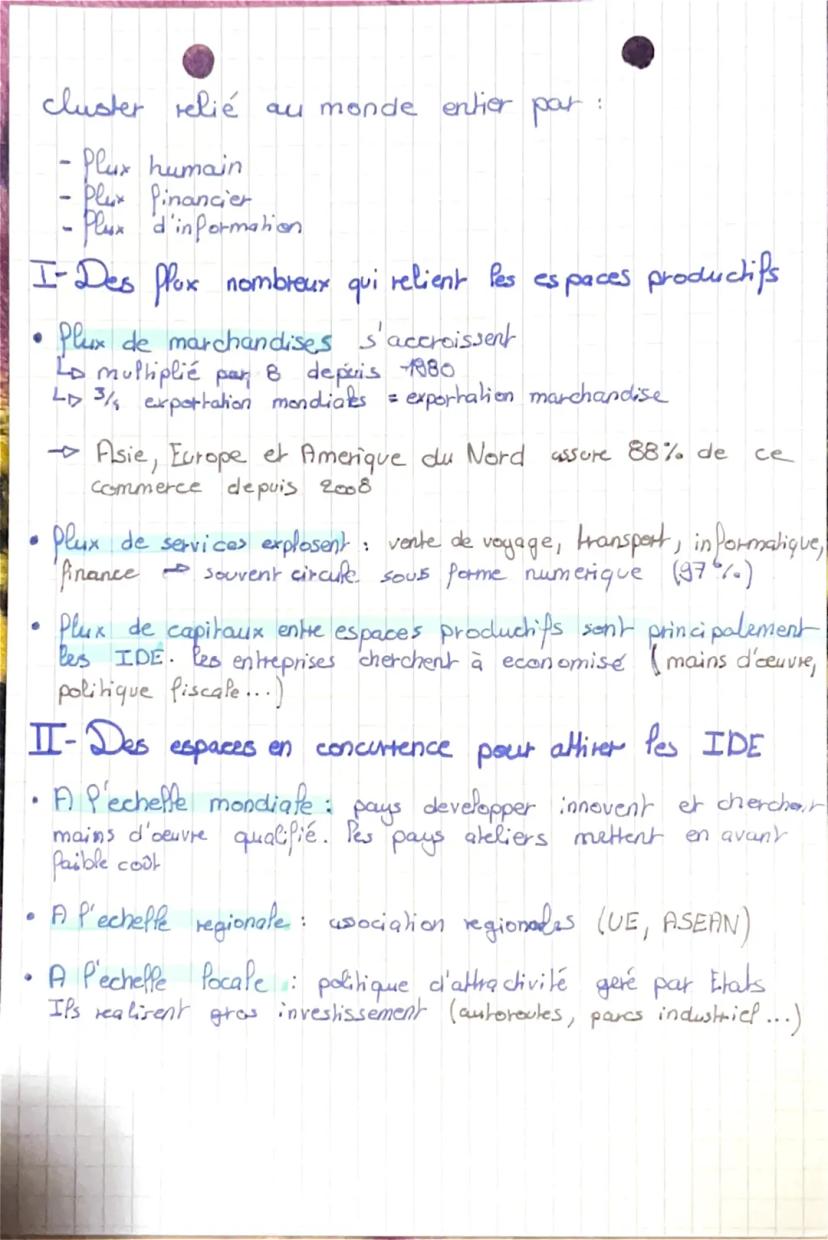 cluster relié au monde entier par :
- flux humain
- flux financier
- flux d'information
I- Des flux nombreux qui relient les espaces productifs
• flux de marchandises s'accroissent
↳ multiplié par 8 depuis 1980
↳ 3/4 exportation mondiales = exportation marchandise
→ Asie, Europe et Amerique du Nord assure 88% de ce
commerce depuis 2008
• flux de services explosent : vente de voyage, transport, informatique,
finance → souvent circule sous forme numerique (97%)
• flux de capitaux entre espaces productifs sont principalement
les IDE. les entreprises cherchent à economisé (mains d'œuvre,
politique fiscale...)
II- Des espaces en concurrence pour attirer les IDE
• A l'echelle mondiale : pays developper innovent et cherchent
mains d'oeuvre qualifié. les pays ateliers mettent en avant
faible coût
• A l'echelle regionale : association regionales (UE, ASEAN)
• A l'échelle locale : politique d'attractivité geré par Etats
Ils realisent gros investissement (autoroutes, parcs industriel...)